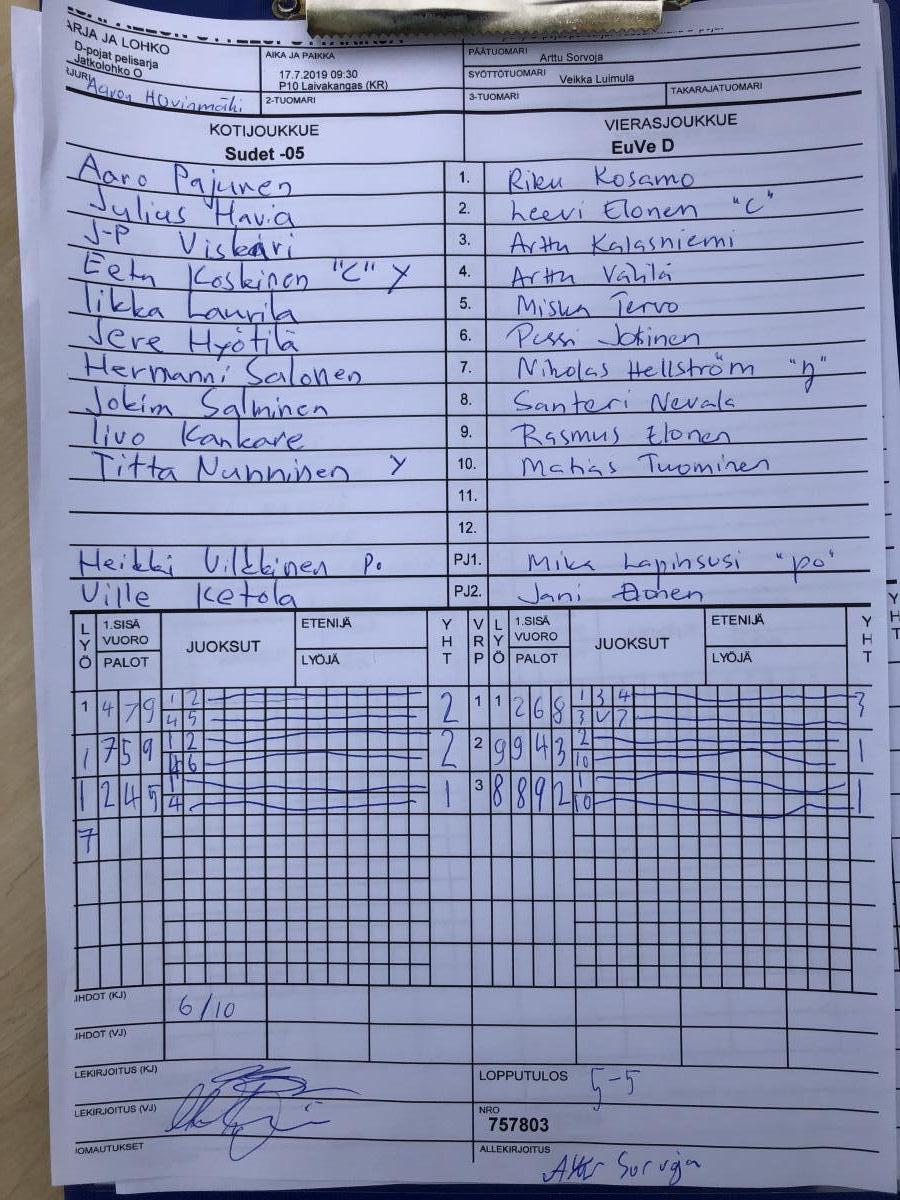 ARJA JA LOHKO
D-pojat pelisarja
Jatkolohko O
AIKA JA PAIKKA
17.7.2019 09:30
P10 Laivakangas (KR)
PÄÄTUOMARI Arttu Sorvoja
SYÖTTÖTUOMARI Veikka Luimula
2-TUOMARI
3-TUOMARI
TAKARAJATUOMARI
KOTIJOUKKUE
Sudet -05
VIERASJOUKKUE
EuVe D
Aaro Pajunen 1. Riku Kosamo
Julius Havia 2. Leevi Elonen "C"
J-P Viskari 3. Arttu Kalasniemi
Eetu Koskinen "C" Y 4. Arttu Vähilä
Iikka Laurila 5. Miska Tervo
Jere Hyötilä 6. Pessi Jokinen
Hermanni Salonen 7. Nikolas Hellström "y"
Jokim Salminen 8. Santeri Nevala
Iivo Kankare 9. Rasmus Elonen
Titta Nunninen Y 10. Matias Tuominen
11.
12.
Heikki P. PJ1. Mika "po"
Ville Ketola PJ2. Jani Elonen
LYÖ 1.SISÄ VUORO PALOT JUOKSUT ETENIJÄ LYÖJÄ YHT VRP LYÖ 1.SISÄ VUORO PALOT JUOKSUT ETENIJÄ LYÖJÄ YHT
1 4 7 9 1 2 2 1 1 2 6 8 1 3 4 3
4 5 3 V 7
1 7 5 9 1 2 2 2 9 9 4 3 2 1
4 6 10
1 2 4 5 1 1 3 8 8 9 2 1 1
4 10
7
IHDOT (KJ) 6/10
IHDOT (VJ)
LEKIRJOITUS (KJ)
LOPPUTULOS 5-5
LEKIRJOITUS (VJ)
NRO
757803
IOMAUTUKSET
ALLEKIRJOITUS
Sorvoja